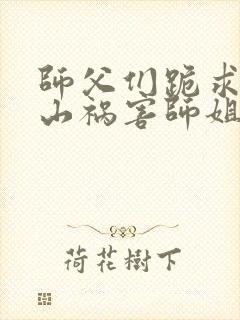 師父们跪求
山祸害師姐
荷花樹下